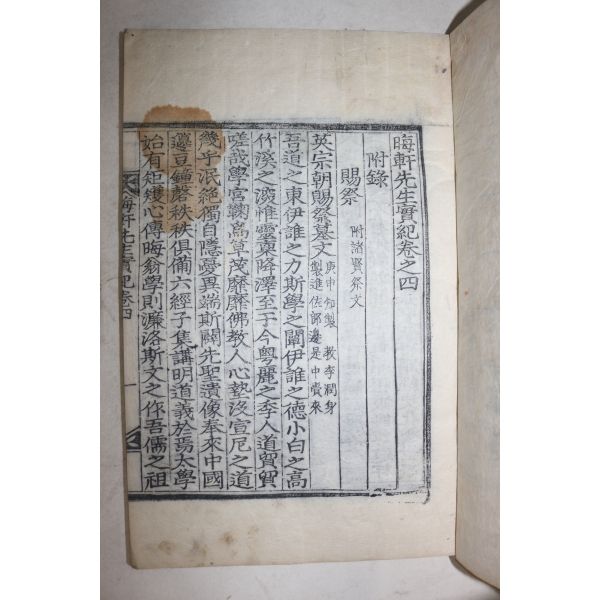 晦軒先生實紀卷之四
附錄
賜祭 附諸賢祭文
英宗朝賜祭墓文 庚申知製 教李潤身
製進佐郎邊是中賷來
吾道之東伊誰之力斯學之闡伊誰之德小白之高
竹溪之濬惟靈東降澤至于今粤麗之季人道貿貿
嗟哉學宮鞠爲草茂靡靡佛教人心墊沒宣尼之道
幾乎泯絶獨自隱憂異端斯闢先聖遺像奉來中國
籩豆鐘磬秩秩俱備六經子集講明道義於焉太學
始有矩矱心傳晦翁學則濂洛斯文之作吾儒之祖
晦軒先生實紀卷四 一